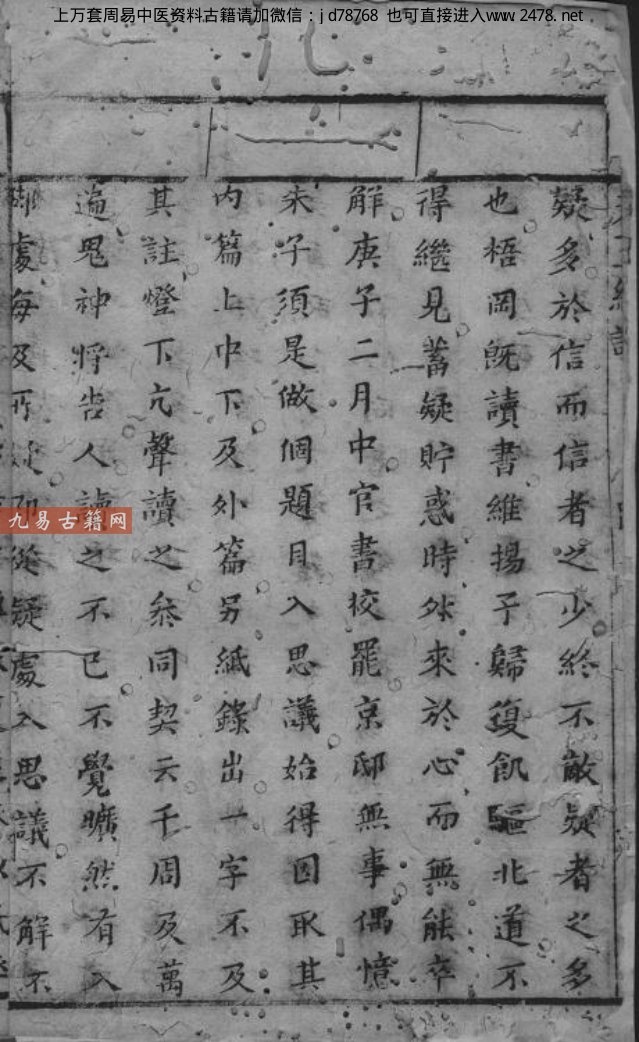 上万套周易中医资料古籍请加微信：jd78768 也可直接进入www.2478.net
疑多於信而信者之少終不敵疑者之多
也梧岡既讀書維揚予歸復飢驅北道不
得繼見蓄疑貯惑時時來於心而無能卒
解庚子二月中官書校罷京邸無事偶憶
朱子須是做個題目入思議始得因取其
內篇上中下及外篇另紙錄出一字不及
其註燈下亢聲讀之叅同契云千周及萬
遍鬼神將告人讀之不已不覺曠然有入
處每及所疑即從疑處入思議不解不
九易古籍网